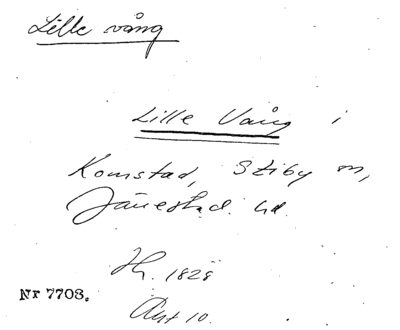 Lille vång
Lille Vång i
Komstad, Stiby sn,
Järrestad. hd.
Hr. 1828
Nr 7708.
Akt 10.